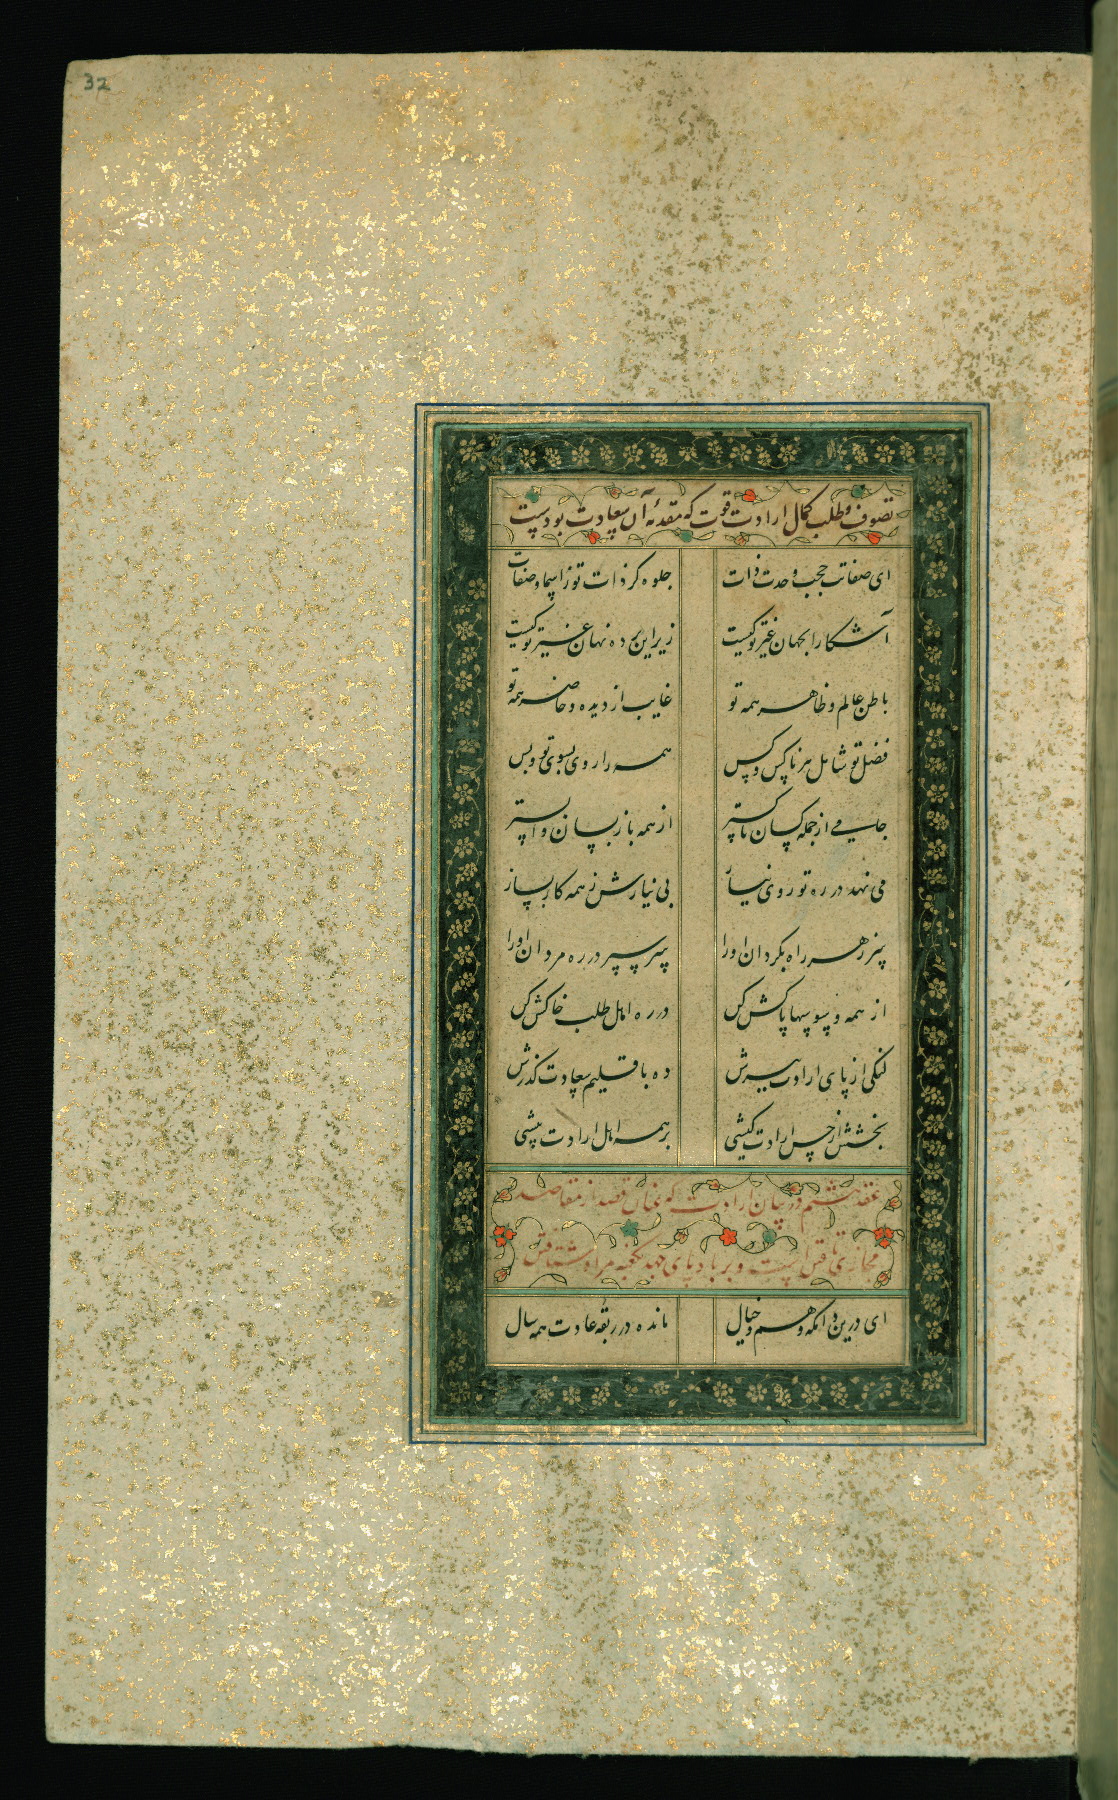 32
تصوف و طلب کمال ارادت قوت که مقدمهٔ آن سعادت بودست
ای صفاتت حجب وحدت ذات جلوه گر ذات تو ز اسما و صفات
آشکارا بجهان غیر تو کیست زیر این پرده نهان غیر تو کیست
باطن عالم و ظاهر همه تو غایب از دیده و حاضر همه تو
فضل تو شامل هر ناکس و کس همه را روی بسوی تو و بس
جامی از جمله کسان ناکستر از همه بازپسان واپستر
می نهد در ره تو روی نیاز بی نیازش ز همه کار بساز
ز هر راه بگردان او را سپر در ره مردان او را
از همه وسوسها پاکش کن در ره اهل طلب خاکش کن
لنگی از پای ارادت ببرش ده باقلیم سعادت گذرش
بخشش از حسن ارادت کیشی بر همه اهل ارادت پیشی
عقد هشتم در بیان ارادت که عنان قصد از مقاصد
مجازی تافتن است و بر بادپای جهد بکعبه مراد شتافتن
ای درین دامگه وهم و خیال مانده در ربقه عادت همه سال